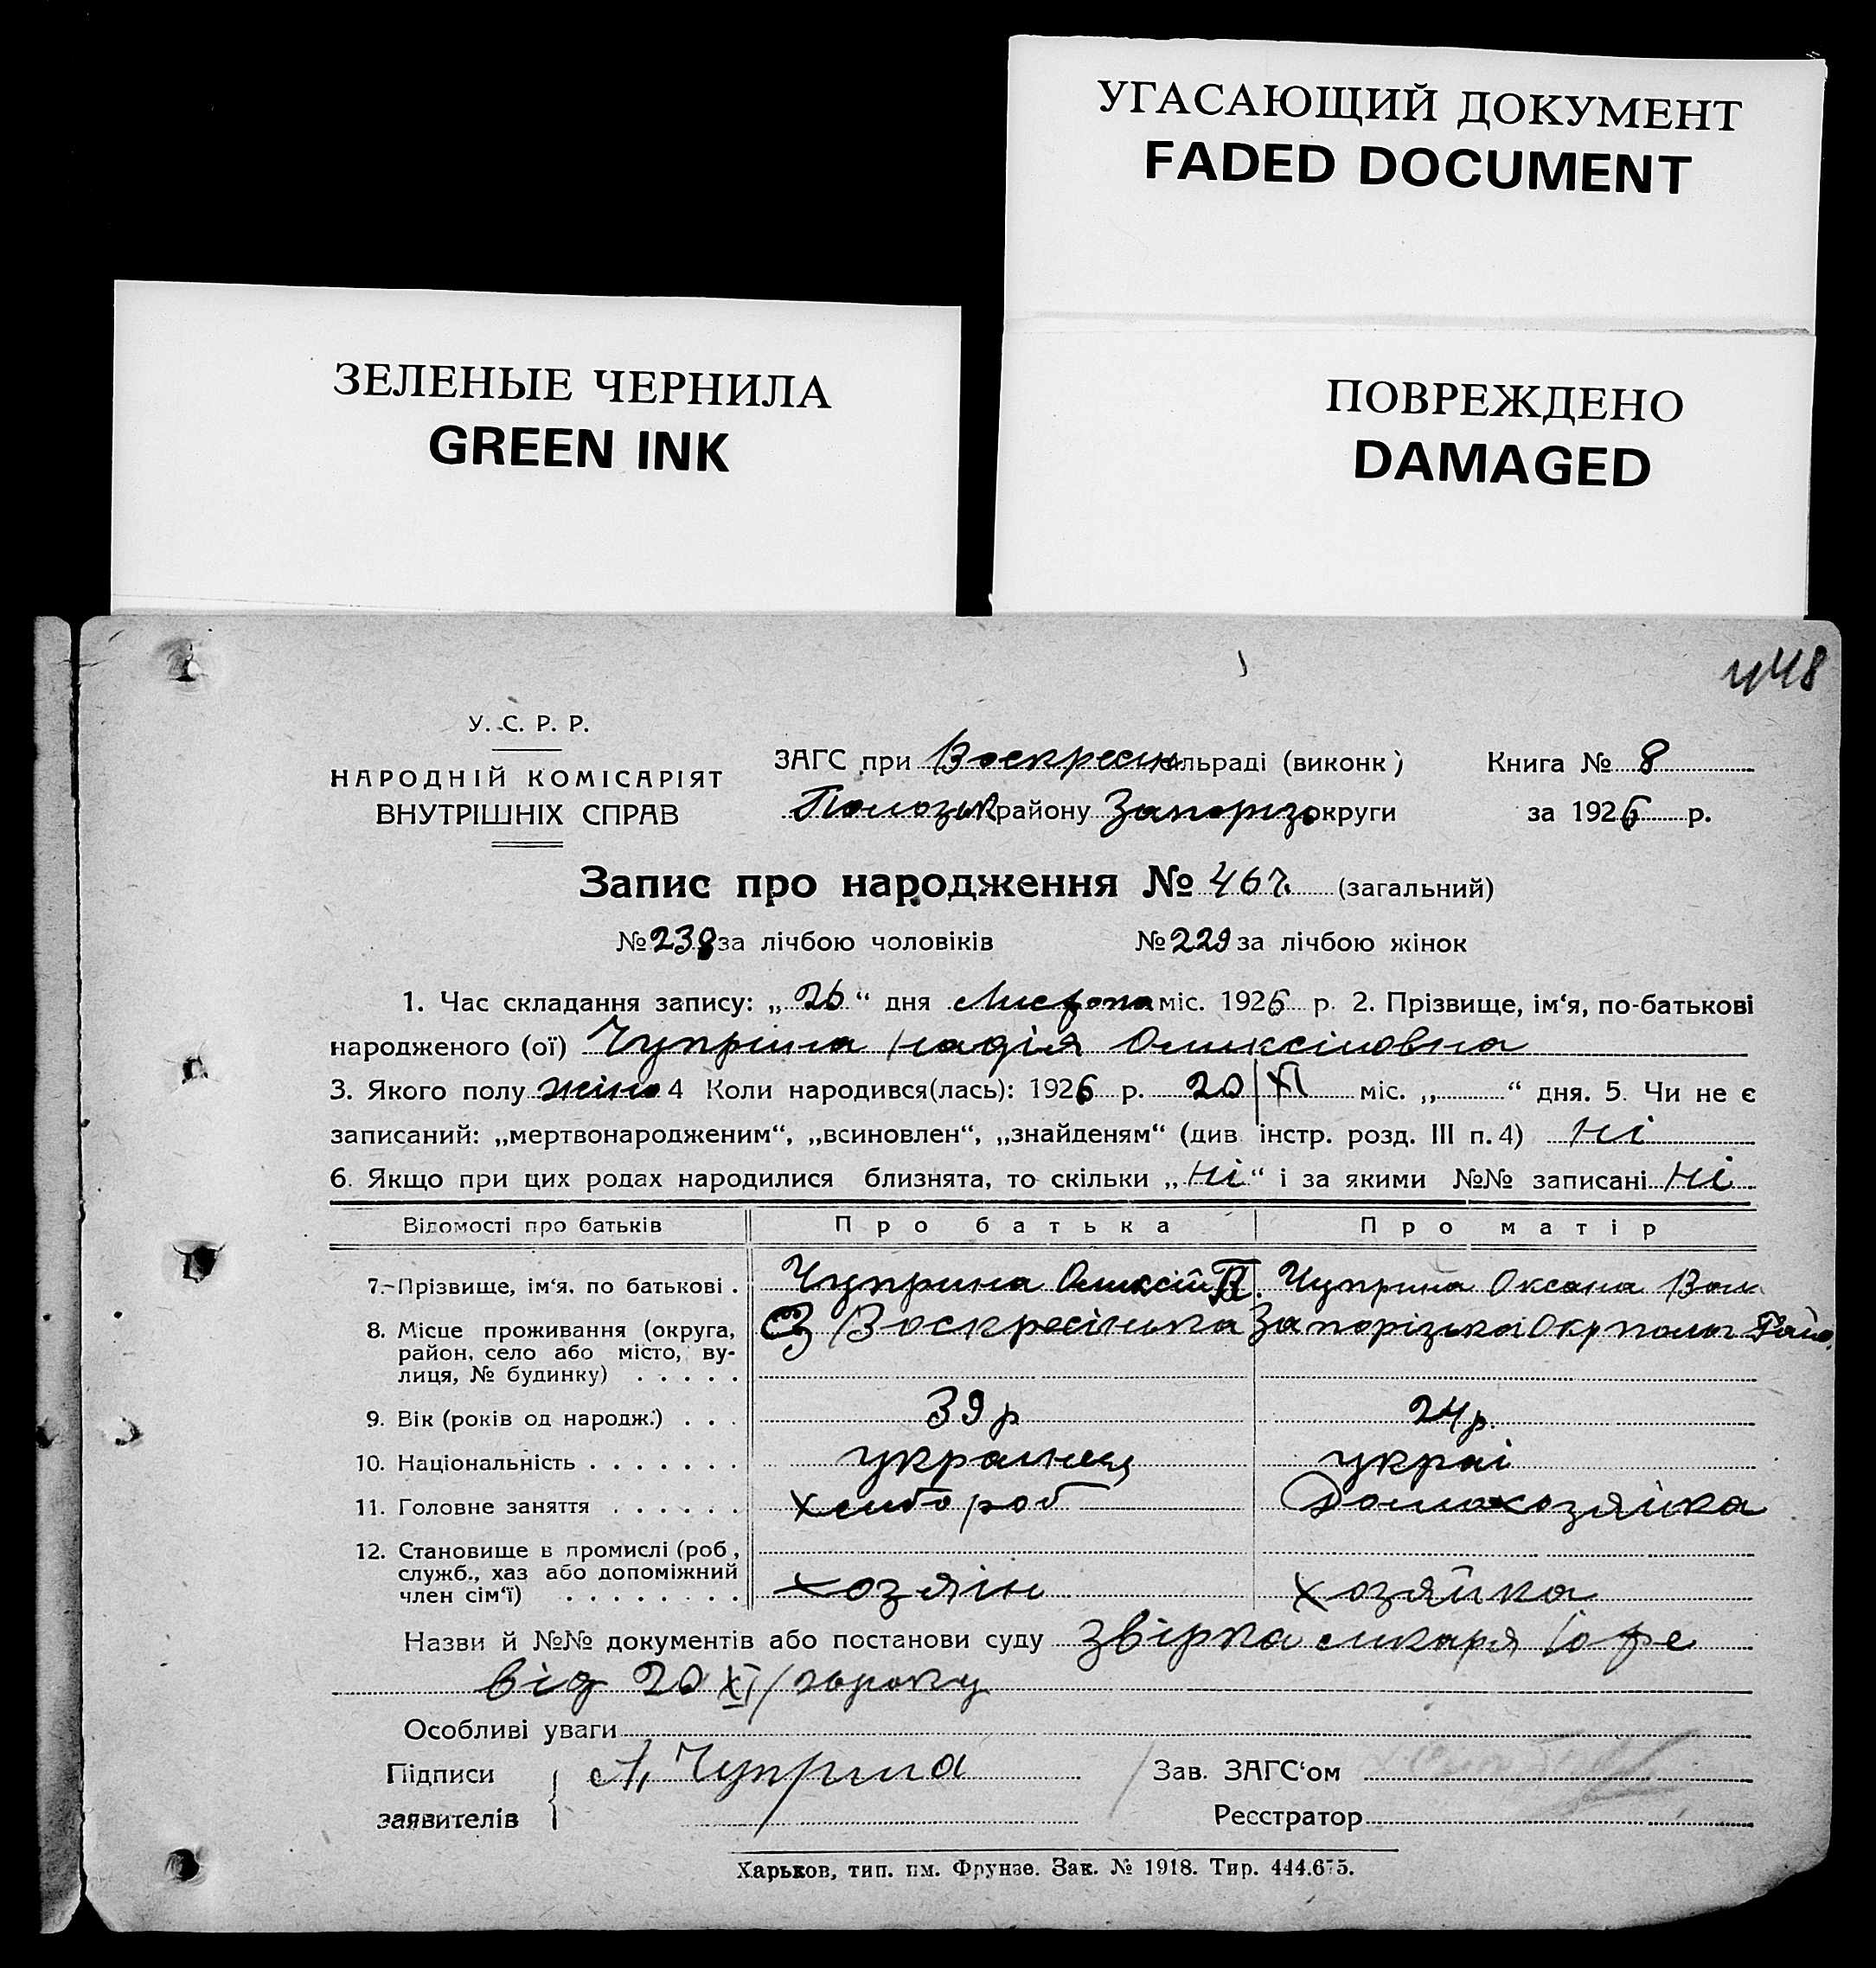 УГАСАЮЩИЙ ДОКУМЕНТ
FADED DOCUMENT
ЗЕЛЕНЫЕ ЧЕРНИЛА
GREEN INK
ПОВРЕЖДЕНО
DAMAGED
448
У. С. Р. Р.
НАРОДНІЙ КОМІСАРІЯТ
ВНУТРІШНІХ СПРАВ
ЗАГС при Воскресін сільраді (виконк)
Пологів району Запоріз округи
Книга № 8
за 1926 р.
Запис про народження № 467 (загальний)
№ 238 за лічбою чоловіків № 229 за лічбою жінок
1. Час складання запису: „26“ дня Листопа міс. 1926 р. 2. Прізвище, ім‘я, по-батькові
народженого (ої) Чуприна Надія Оликсіювна
3. Якого полу жіно 4 Коли народився(лась): 1926 р. 20/XI міс. „ “ дня. 5. Чи не є
записаний: „мертвонародженим“, „всиновлен“, „знайденям“ (див інстр. розд. III п. 4) Ні
6. Якщо при цих родах народилися близнята, то скільки „Ні“ і за якими №№ записані Ні
Відомості про батьків Про батька Про матір
7. Прізвище, ім‘я, по батькові . Чуприна Оликсій В. Чуприна Оксана
8. Місце проживання (округа, район, село або місто, вулиця, № будинку) . . . . . С Воскресінька Запорізька Окр Полог Райо.
9. Вік (років од народж.) . . . 39 р 24 р.
10. Національність . . . . . . . украинец украі
11. Головне заняття . . . . . . хлибороб Домохозяйка
12. Становище в промислі (роб., служб., хаз або допоміжний член сім‘ї) . . . . . . . . хозяін хозяйка
Назви й №№ документів або постанови суду Звірка ликаря Іофе
від 20 XI/
Особливі уваги
Підписи
заявителів
А. Чуприна
Зав. ЗАГС‘ом
Реєстратор
Харьков, тип. им. Фрунзе. Зак. № 1918. Тир. 444.675.